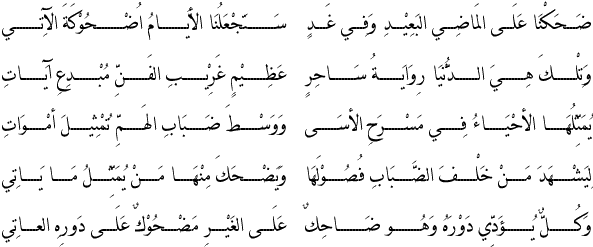 ضَحَكْنَا عَلَى المَاضِي البَعِيْدِ وَفِي غَدٍ سَتَجْعَلُنَا الأَيَّامُ أُضْحُوْكَةَ الآتِي
وَتِلْكَ هِيَ الدُّنْيَا رِوَايَةُ سَاحِرٍ عَظِيْمٍ غَرِيْبِ الفَنِّ مُبْدِعِ آيَاتِ
يُمَثِّلُهَا الأَحْيَاءُ فِي مَسْرَحِ الأَسَى وَوَسْطَ ضَبَابِ الهَمِّ تَمْثِيْلَ أَمْوَاتِ
لِيَشْهَدَ مَنْ خَلْفَ الضَّبَابِ فُصُوْلَهَا وَيَضْحَكَ مِنْهَا مَنْ يُمَثِّلُ مَا يَاتِي
وَكُلٌّ يُؤَدِّي دَوْرَهُ وَهُو ضَاحِكٌ عَلَى الغَيْرِ مَضْحُوْكٌ عَلَى دَورِهِ العَاتِي